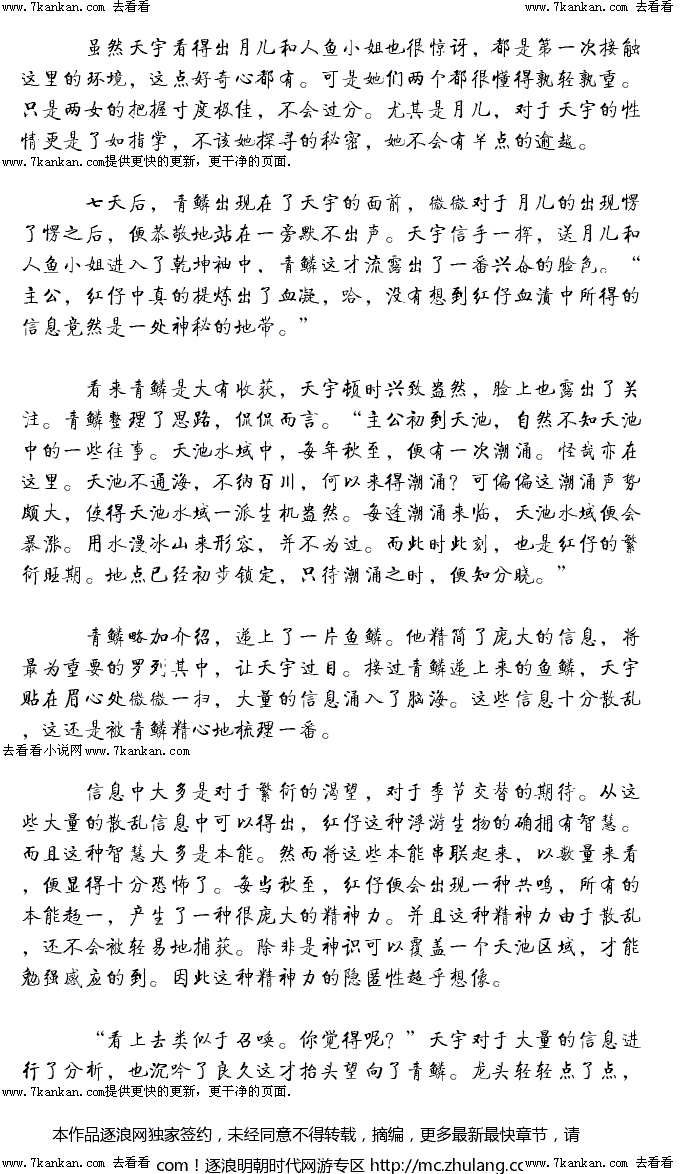 www.7kankan.com 去看看 www.7kankan.com 去看看
虽然天宇看得出月儿和人鱼小姐也很惊讶，都是第一次接触
这里的环境，这点好奇心都有。可是她们两个都很懂得孰轻孰重。
只是两女的把握寸度极佳，不会过分。尤其是月儿，对于天宇的性
情更是了如指掌，不该她探寻的秘密，她不会有半点的逾越。
www.7kankan.com提供更快的更新，更干净的页面.
七天后，青鳞出现在了天宇的面前，微微对于月儿的出现愣
了愣之后，便恭敬地站在一旁默不出声。天宇信手一挥，送月儿和
人鱼小姐进入了乾坤袖中，青鳞这才流露出了一番兴奋的脸色。“
主公，红仔中真的提炼出了血凝，哈，没有想到红仔血渍中所得的
信息竟然是一处神秘的地带。”
看来青鳞是大有收获，天宇顿时兴致盎然，脸上也露出了关
注。青鳞整理了思路，侃侃而言。“主公初到天池，自然不知天池
中的一些往事。天池水域中，每年秋至，便有一次潮涌。怪哉亦在
这里。天池不通海，不纳百川，何以来得潮涌？可偏偏这潮涌声势
颇大，使得天池水域一派生机盎然。每逢潮涌来临，天池水域便会
暴涨。用水漫冰山来形容，并不为过。而此时此刻，也是红仔的繁
衍旺期。地点已经初步锁定，只待潮涌之时，便知分晓。”
青鳞略加介绍，递上了一片鱼鳞。他精简了庞大的信息，将
最为重要的罗列其中，让天宇过目。接过青鳞递上来的鱼鳞，天宇
贴在眉心处微微一扫，大量的信息涌入了脑海。这些信息十分散乱
，这还是被青鳞精心地梳理一番。
去看看小说网www.7kankan.com
信息中大多是对于繁衍的渴望，对于季节交替的期待。从这
些大量的散乱信息中可以得出，红仔这种浮游生物的确拥有智慧。
而且这种智慧大多是本能。然而将这些本能串联起来，以数量来看
，便显得十分恐怖了。每当秋至，红仔便会出现一种共鸣，所有的
本能趋一，产生了一种很庞大的精神力。并且这种精神力由于散乱
，还不会被轻易地捕获。除非是神识可以覆盖一个天池区域，才能
勉强感应的到。因此这种精神力的隐匿性超乎想像。
“看上去类似于召唤。你觉得呢？”天宇对于大量的信息进
行了分析，也沉吟了良久这才抬头望向了青鳞。龙头轻轻点了点，
www.7kankan.com提供更快的更新，更干净的页面.
本作品逐浪网独家签约，未经同意不得转载，摘编，更多最新最快章节，请
www.7kankan.com 去看看 com！逐浪明朝时代网游专区 http://mc.zhulang.co www.7kankan.com 去看看